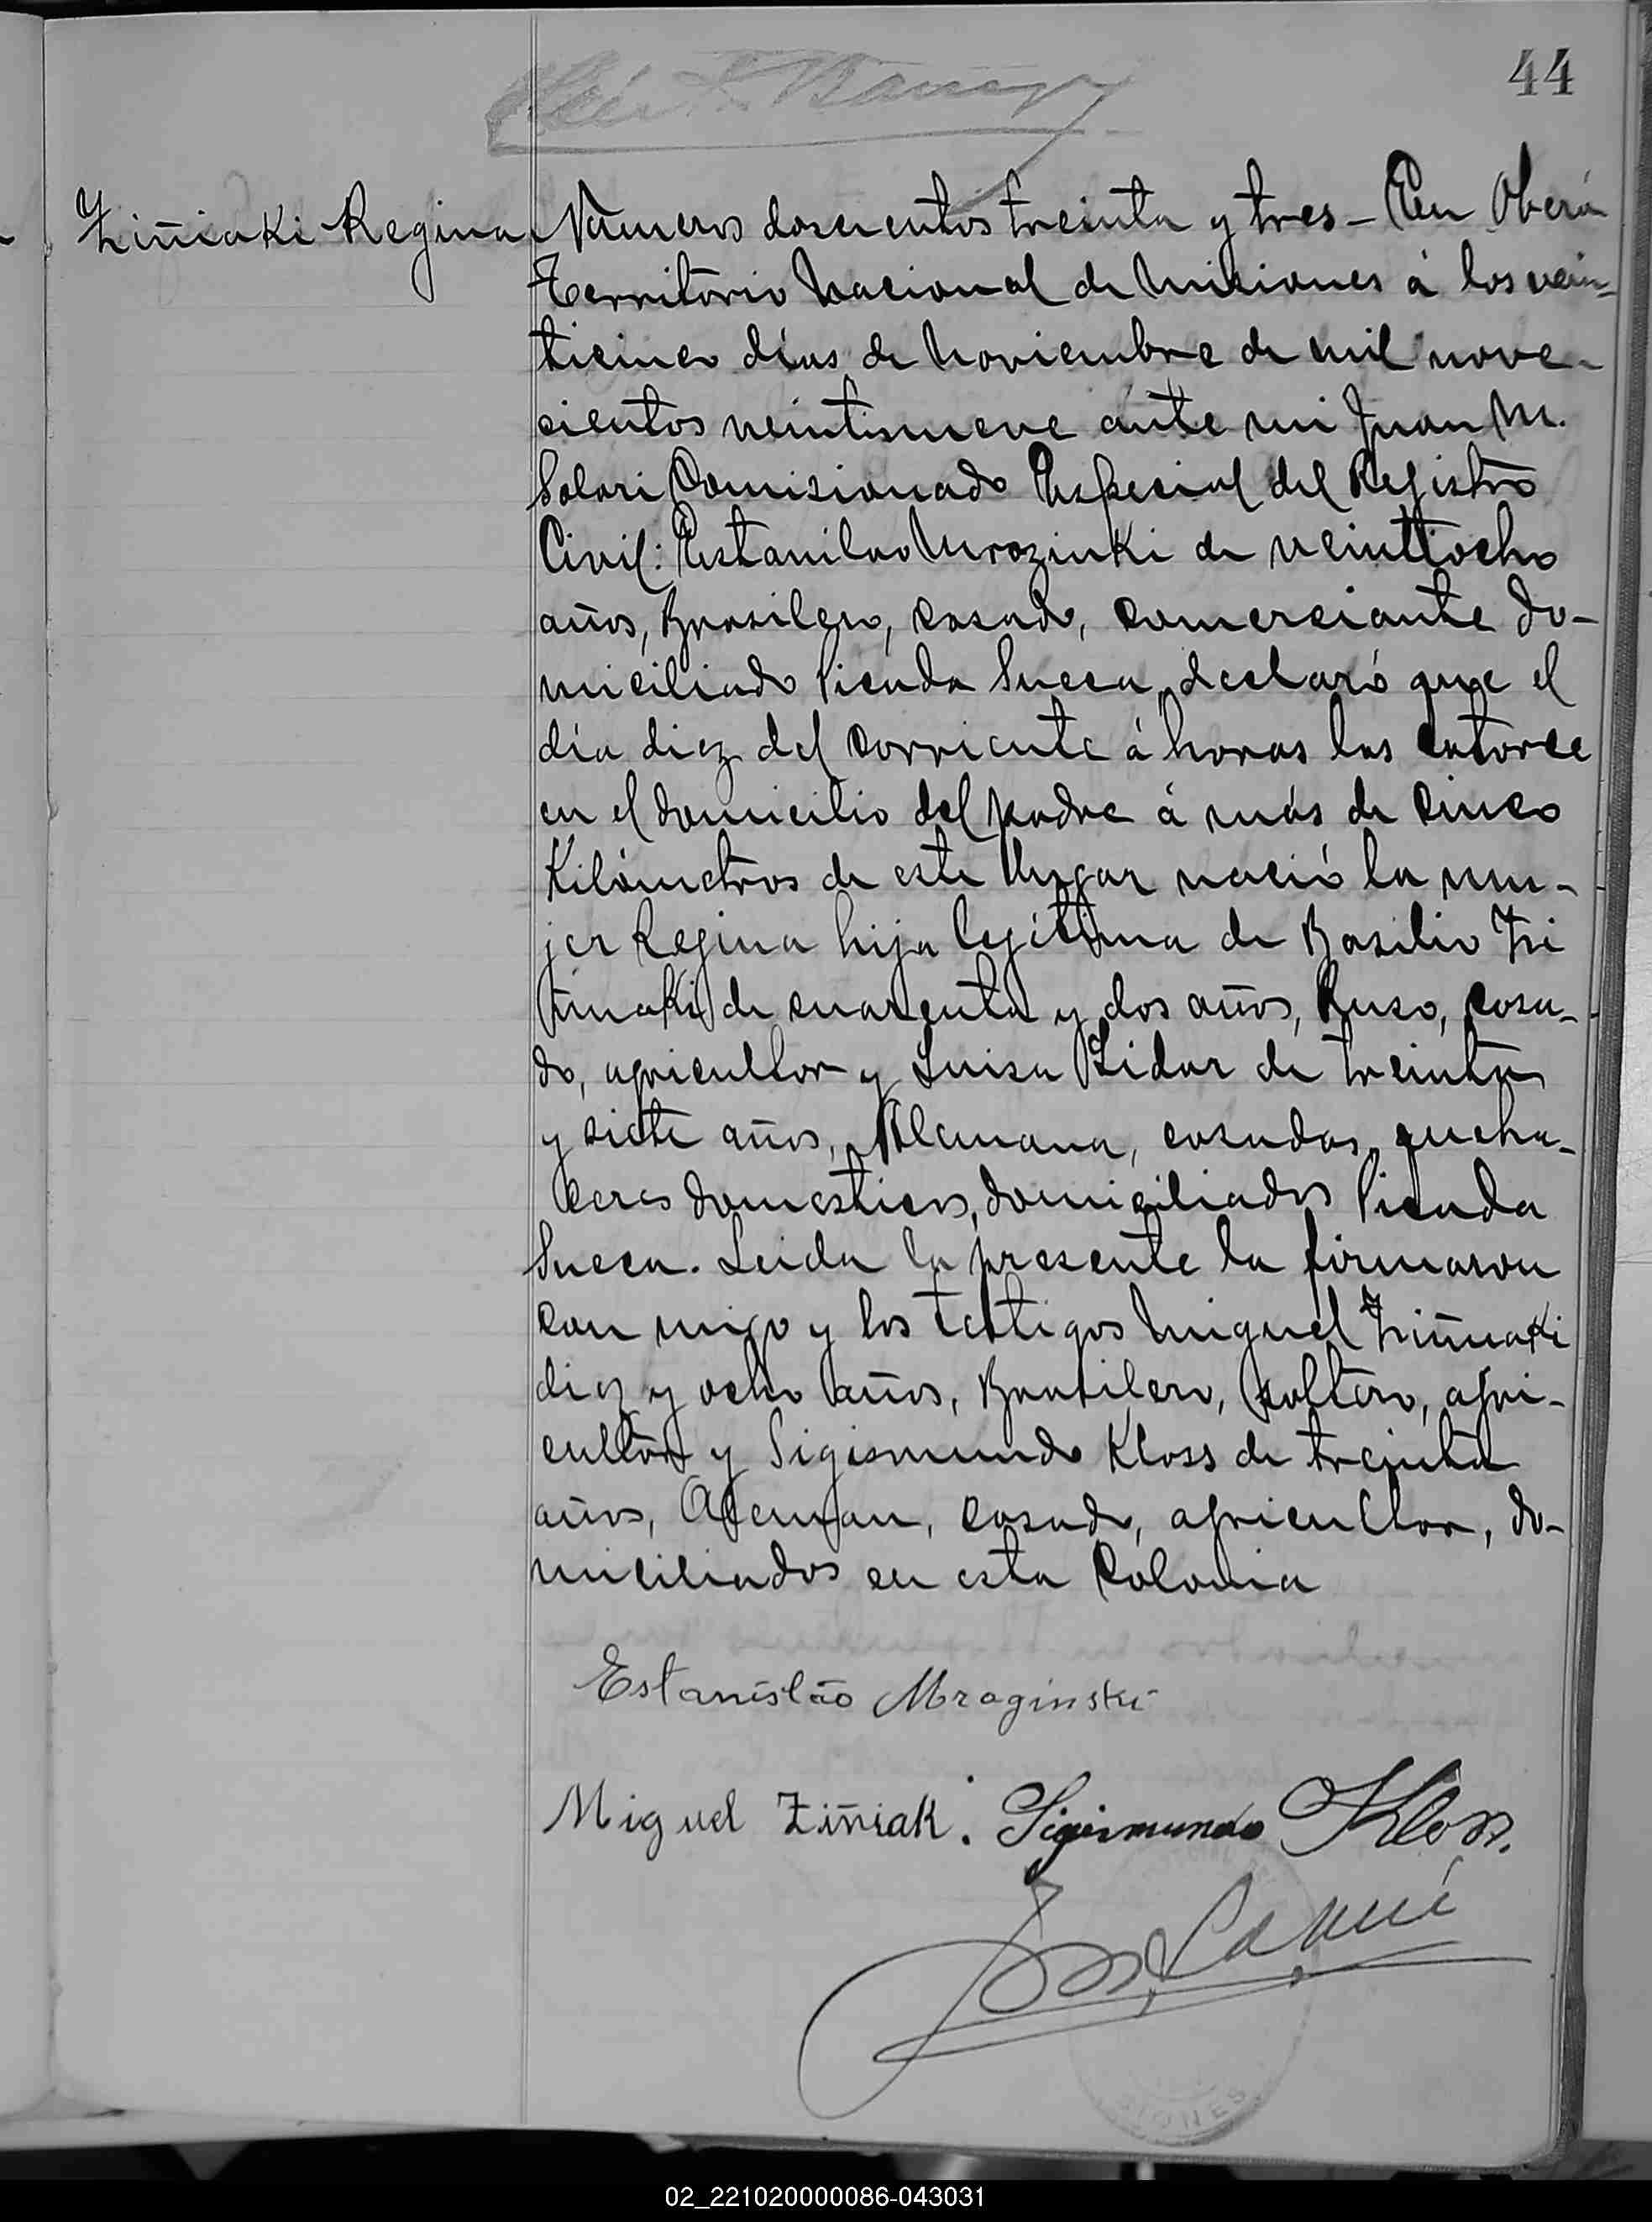 44
Ziñiaki Regina
Número doscientos treinta y tres - En Oberá
Territorio Nacional de Misiones á los vein-
ticinco días de Noviembre de mil nove-
cientos veintinueve ánte mi Juan M.
Solari Comisionado Especial del Registro
Civil: Estanilao Mrozinki de veintiocho
años, Brasilero, casado, comerciante do-
miciliado Picada Sueca, declaró que el
día diez del corriente á horas las catorce
en el domicilio del padre á más de cinco
Kilómetros de este lugar nació la mu-
jer Regina hija legítima de Basilio Zi
ñnaki de cuarenta y dos años, Ruso, casa-
do, agricultor y Luisa Lidar de treinta
y siete años, Alemana, casados, queha-
ceres domesticos, domiciliados Picada
Sueca. Leida la presente la firmaron
con migo y los testigos Miguel Ziñnaki
diez y ocho años, Brasilero, soltero, agri-
cultor y Sigismundo Kloss de treinta
años, Aleman, casado, agricultor, do-
miciliados en esta Colonia
Estanislão Mraginski
Miguel Ziñiak. Sigismundo Kloss.
SIONES
02_221020000086-043031